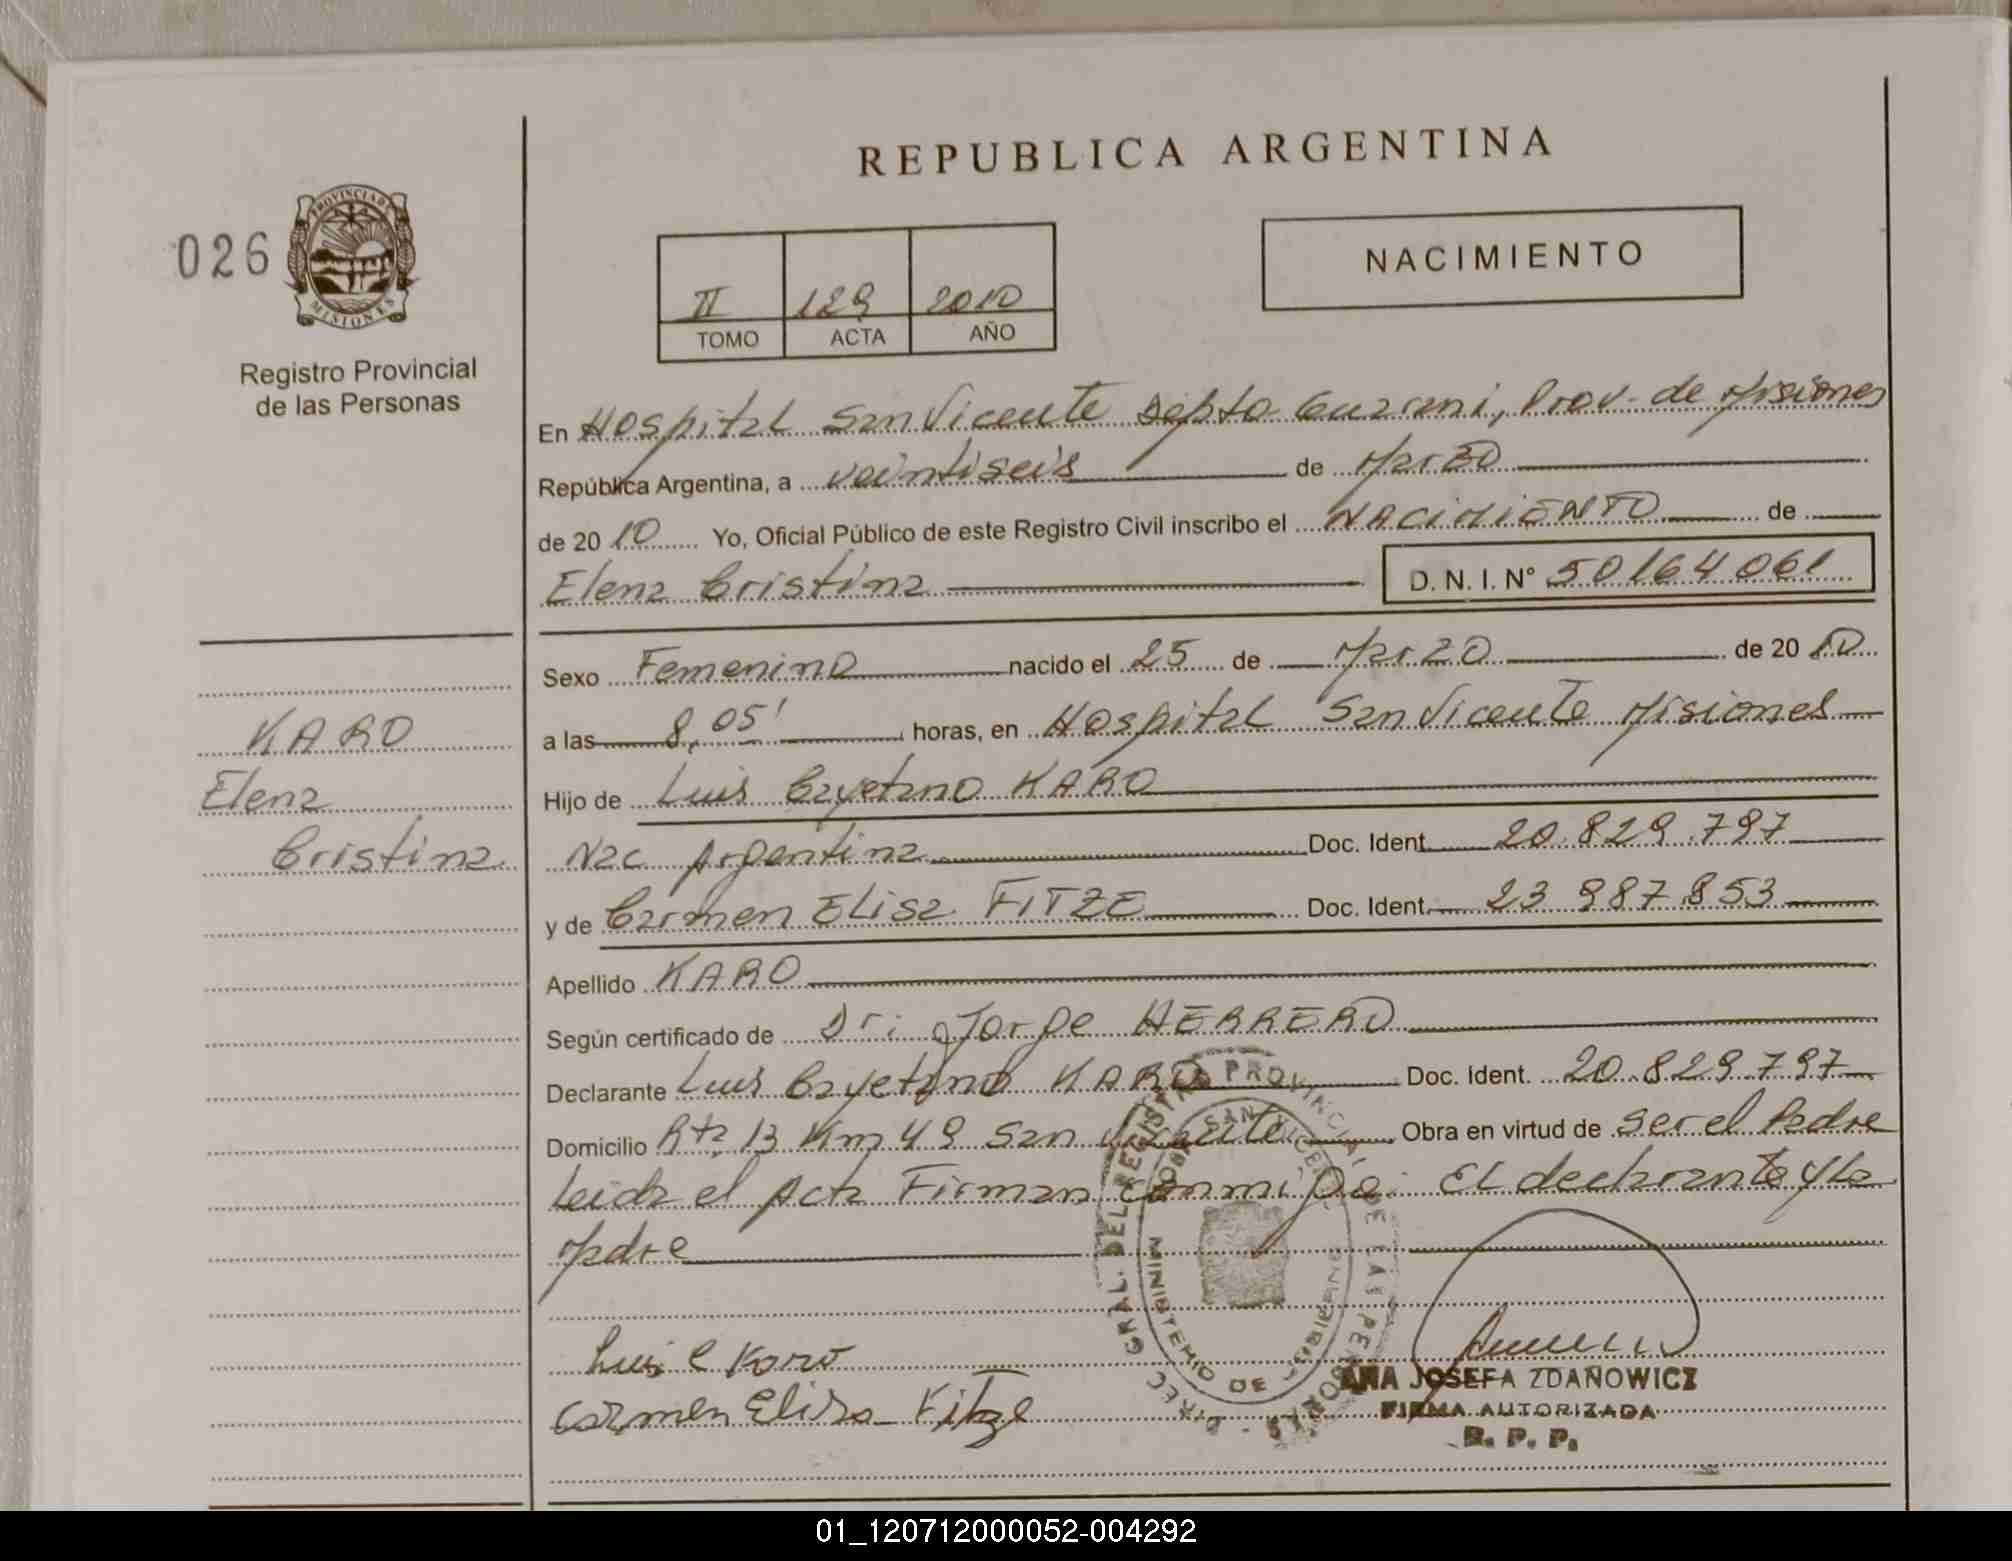 REPUBLICA ARGENTINA
026
PROVINCIA DE
MISIONES
Registro Provincial
de las Personas
II 129 2010
TOMO ACTA AÑO
NACIMIENTO
En Hospital San Vicente Depto Guarani, Prov. de Misiones
República Argentina, a veintiseis de Marzo
de 2010 Yo, Oficial Público de este Registro Civil inscribo el NACIMIENTO de
Elena Cristina D. N. I. N° 50164061
Sexo Femenino nacido el 25 de Marzo de 2010
a las 8,05' horas, en Hospital San Vicente Misiones
Hijo de Luis Cayetano KARO
Nac Argentina Doc. Ident. 20.829.797
y de Carmen Elisa FITZE Doc. Ident. 23 987 853
Apellido KARO
Según certificado de Dr: Jorge HERRERO
Declarante Luis Cayetano KARO Doc. Ident. 20.829.797
Domicilio Rta 13 Km 49 San Vicente Obra en virtud de ser el Padre
Leida el Acta Firman conmigo: El declarante y la
Madre
KARO
Elena
Cristina
Luis C Karo
Carmen Elisa Fitze
DIREC. GRAL. DEL REGISTRO PROVINCIAL DE LAS PERSONAS
SAN VICENTE
MINISTERIO DE GOBIERNO
ANA JOSEFA ZDANOWICZ
FIRMA AUTORIZADA
R. P. P.
01_120712000052-004292